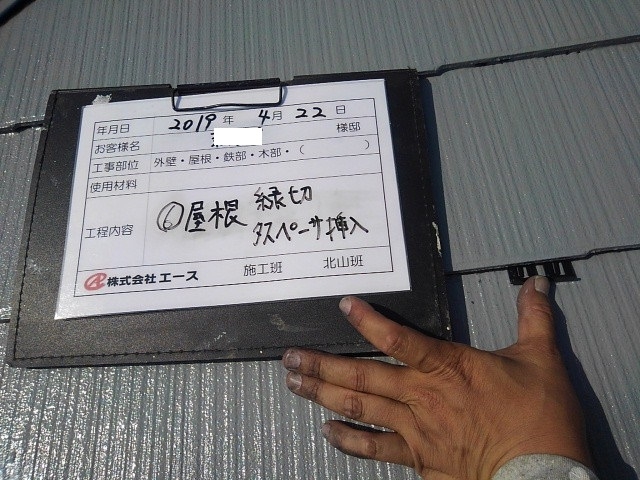 年月日 2019 年 4 月 22 日
お客様名 様邸
工事部位 外壁・屋根・鉄部・木部・（ ）
使用材料
工程内容 ⑥屋根 縁切
タスペーサ挿入
株式会社エース 施工班 北山班